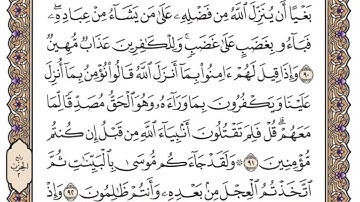 بَغْيًا أَن يُنَزِّلَ ٱللَّهُ مِن فَضْلِهِۦ عَلَىٰ مَن يَشَآءُ مِنْ عِبَادِهِۦۖ
فَبَآءُو بِغَضَبٍ عَلَىٰ غَضَبٍۚ وَلِلْكَٰفِرِينَ عَذَابٌ مُّهِينٌ
٩٠ وَإِذَا قِيلَ لَهُمْ ءَامِنُوا۟ بِمَآ أَنزَلَ ٱللَّهُ قَالُوا۟ نُؤْمِنُ بِمَآ أُنزِلَ
عَلَيْنَا وَيَكْفُرُونَ بِمَا وَرَآءَهُۥ وَهُوَ ٱلْحَقُّ مُصَدِّقًا لِّمَا
مَعَهُمْۗ قُلْ فَلِمَ تَقْتُلُونَ أَنۢبِيَآءَ ٱللَّهِ مِن قَبْلُ إِن كُنتُم
مُّؤْمِنِينَ ٩١ ۞ وَلَقَدْ جَآءَكُم مُّوسَىٰ بِٱلْبَيِّنَٰتِ ثُمَّ
ٱتَّخَذْتُمُ ٱلْعِجْلَ مِنۢ بَعْدِهِۦ وَأَنتُمْ ظَٰلِمُونَ ٩٢ وَإِذْ